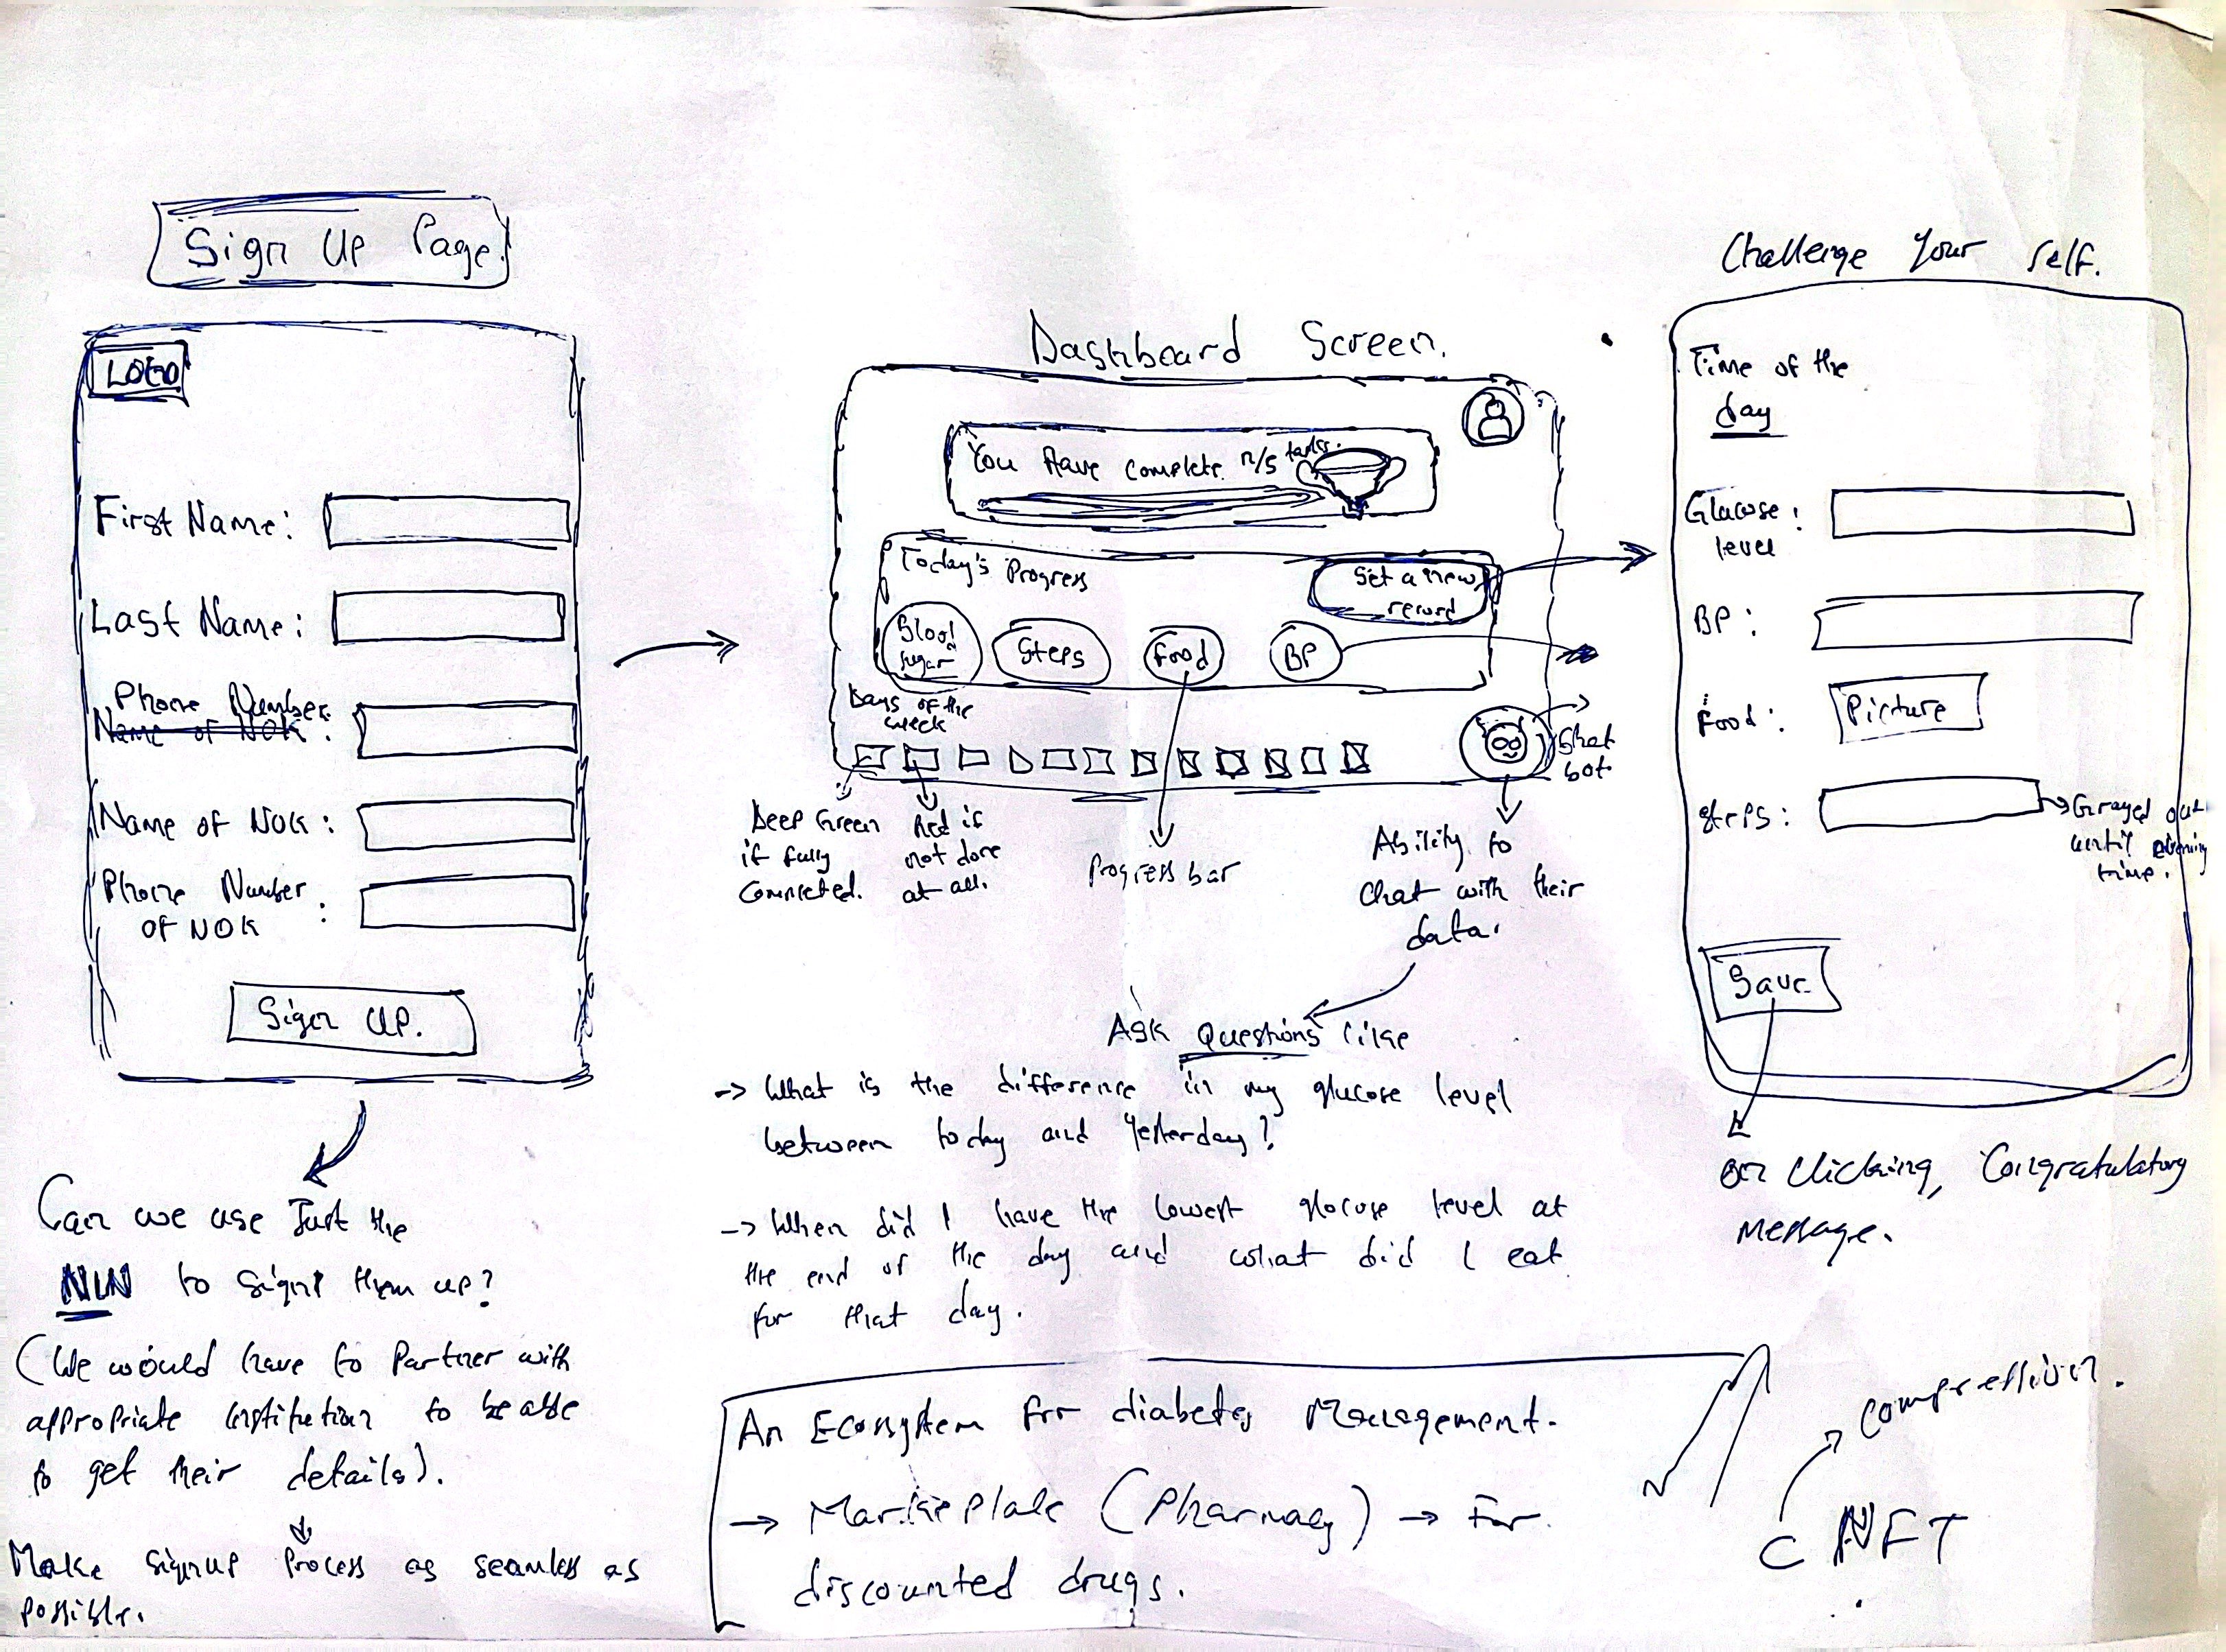 Sign UP Page
LOGO
First Name:
Last Name:
Phone Number
Name of NOK :
Name of NOK :
Phone Number
OF NOK :
Sign UP.
Can we use Just the
NIN to sign them up?
(We would have to Partner with
appropriate institution to be able
to get their details).
Make signup Process as seamless as
possible.
Dashboard Screen.
You Have Complete n/5 tasks.
Today's Progress
Set a new
record
Blood
sugar
Steps
Food
BP
Days of the
week
Chat
bot
Deep Green
if fully
Completed.
Red if
not done
at all.
Progress bar
Ability to
Chat with their
data.
Ask Questions like
-> What is the difference in my glucose level
between today and Yesterday?
-> When did I have the lowest glocose level at
the end of the day and what did I eat
for that day.
An Ecosystem for diabetes Management.
→ Marketplace (Pharmacy) → For
discounted drugs.
Challenge Your Self.
Time of the
day
Glucose :
level
BP :
Food : Picture
Steps :
Grayed out
until evening
time.
Save
on Clicking, Congratulatory
Message.
compression.
C NFT